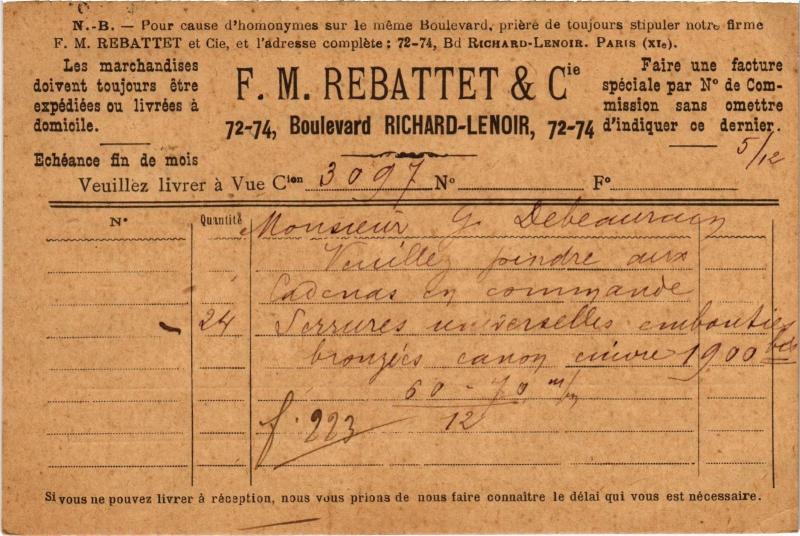 N.-B. — Pour cause d'homonymes sur le même Boulevard, prière de toujours stipuler notre firme
F. M. REBATTET et Cie, et l'adresse complète : 72-74, Bd RICHARD-LENOIR. PARIS (XIe).
Les marchandises
doivent toujours être
expédiées ou livrées à
domicile.
F. M. REBATTET & Cie
72-74, Boulevard RICHARD-LENOIR, 72-74
Faire une facture
spéciale par N° de Com-
mission sans omettre
d'indiquer ce dernier.
5/12
Echéance fin de mois
Veuillez livrer à Vue Cion 3097 N° F°
N° Quantité
Monsieur G. 
Veuillez joindre aux
Cadenas en commande
24 Serrures universelles embouties
bronzées canon cuivre 1900 bis
60 - 70 m/m
12
f. 223
Si vous ne pouvez livrer à réception, nous vous prions de nous faire connaître le délai qui vous est nécessaire.